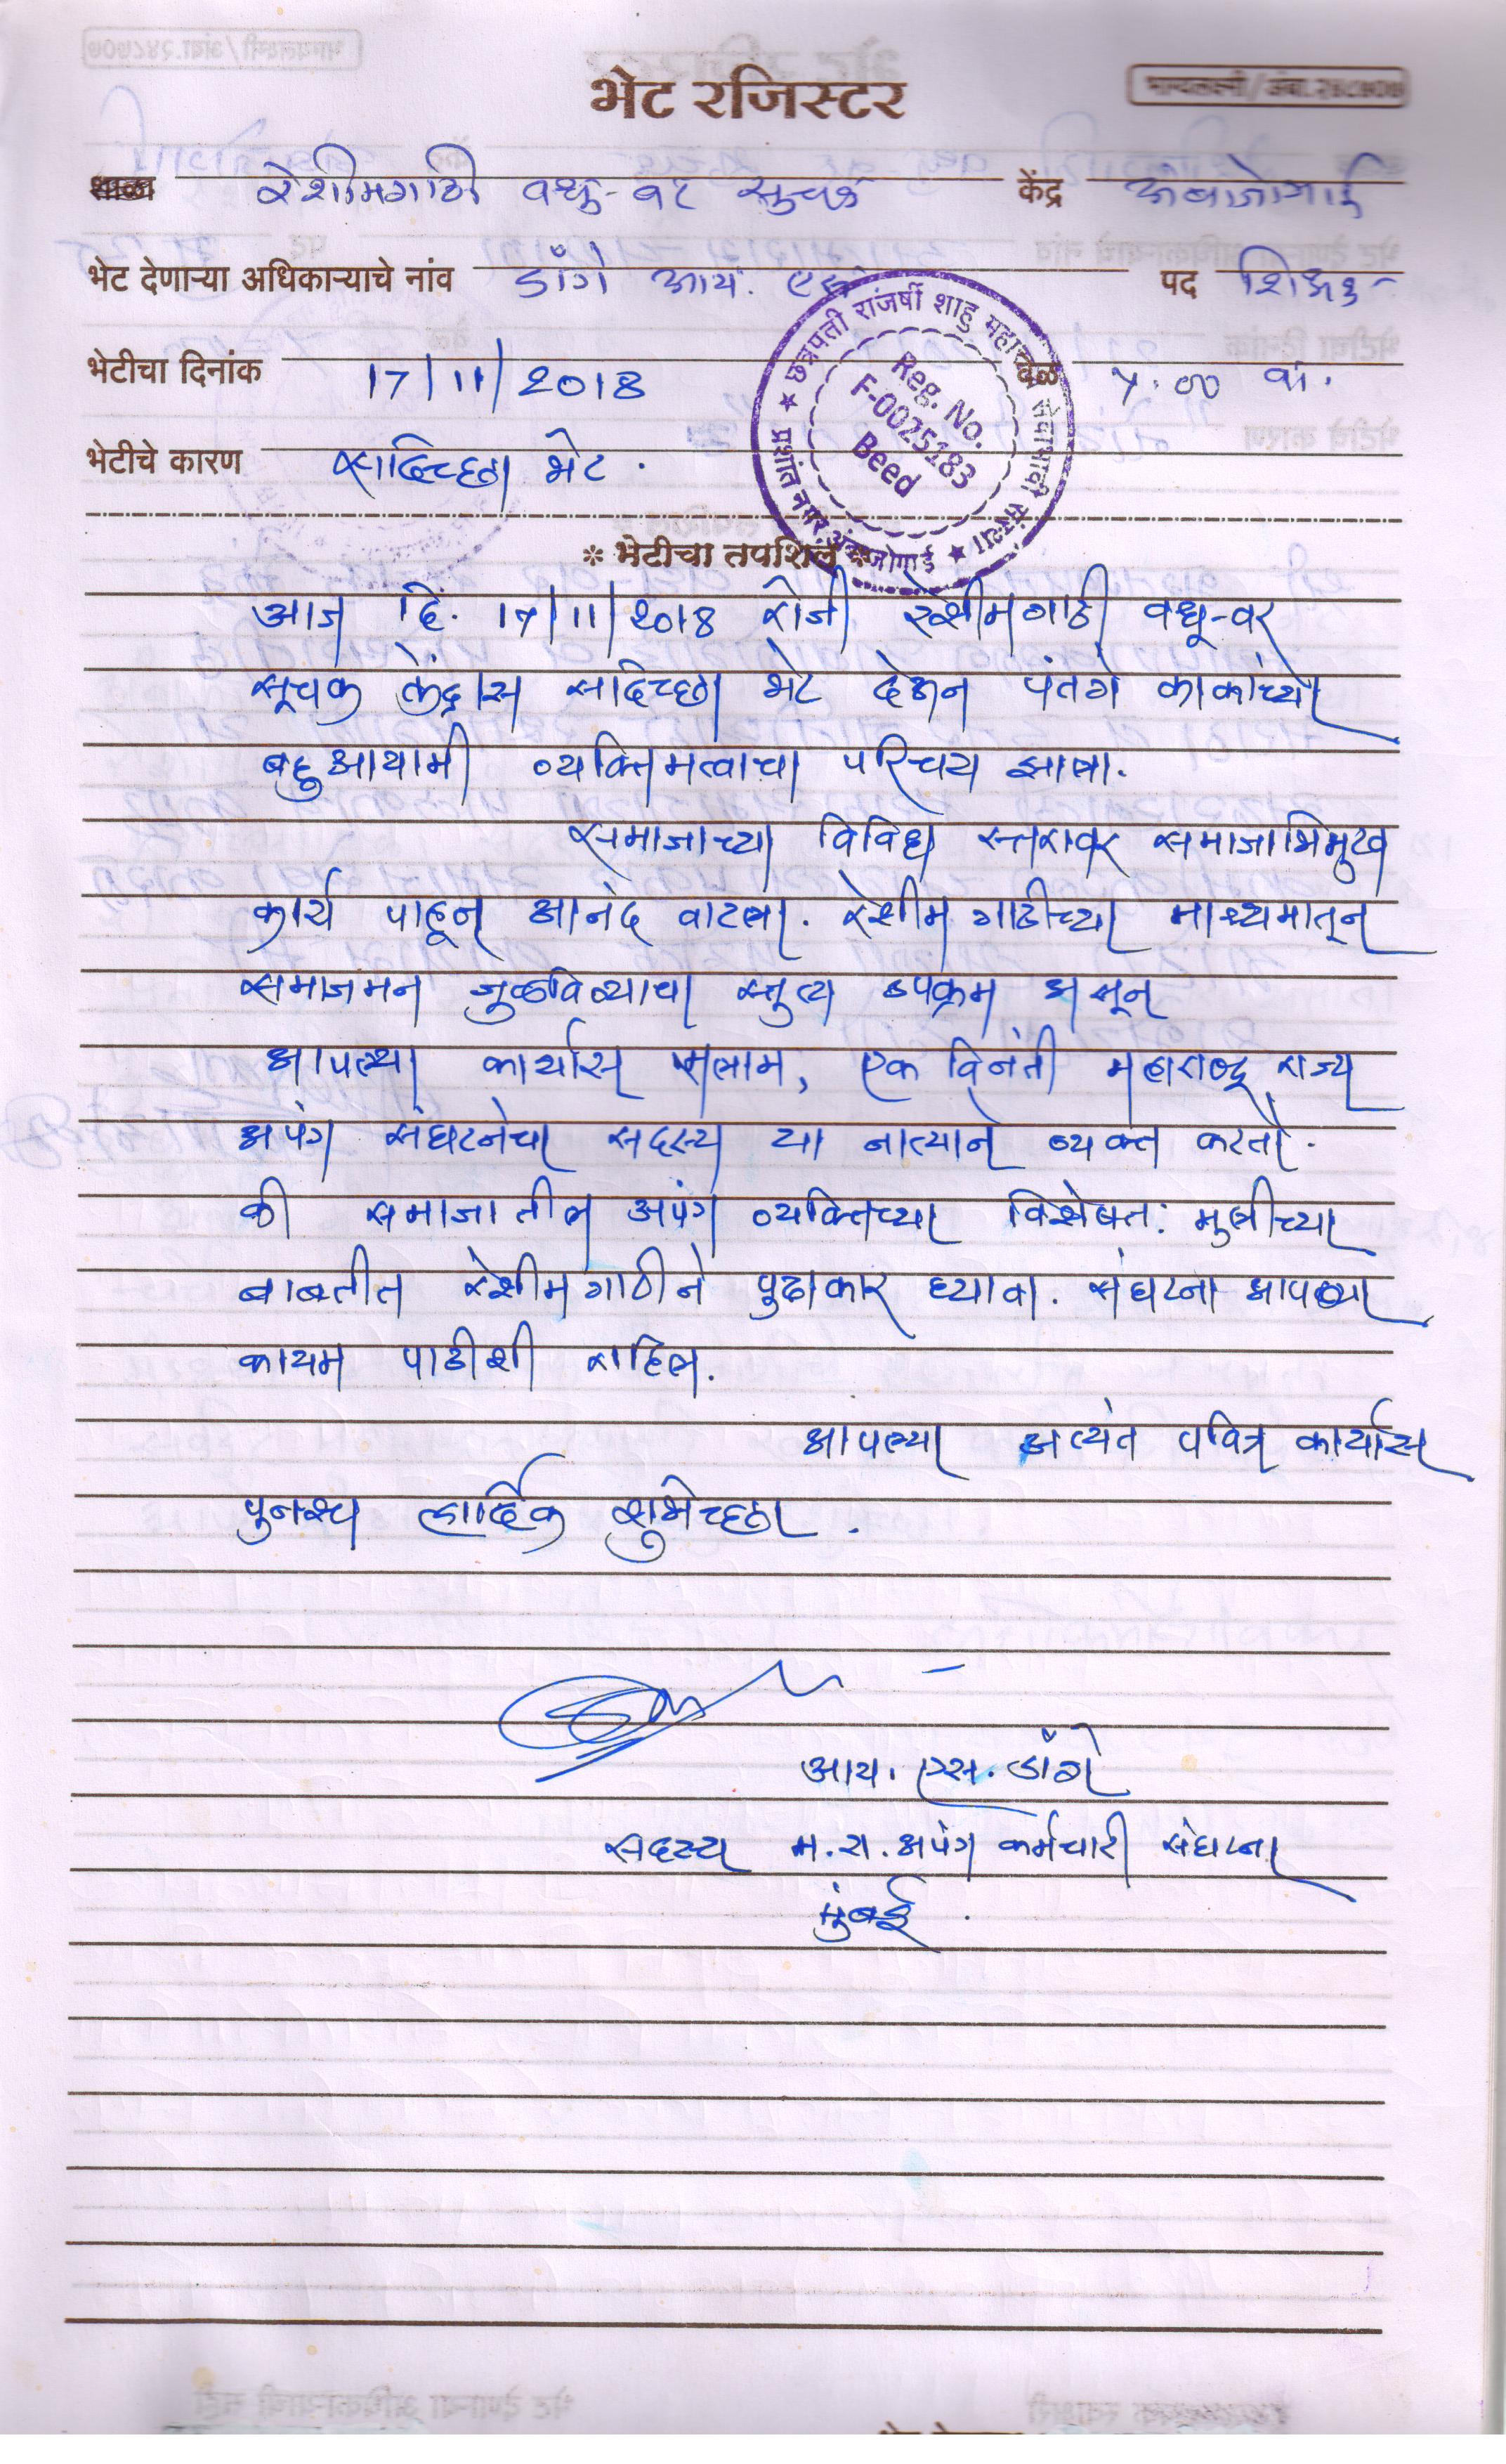 भेट रजिस्टर
भाग्यलक्ष्मी/अंबा.२४८५०७
शाळा रेशीमगाठी वधु-वर सुचक केंद्र अंबाजोगाई
भेट देणाऱ्या अधिकाऱ्याचे नांव डाँगे आय. एस. पद शिक्षक
भेटीचा दिनांक 17/11/2018 वेळ 5.00 वा.
भेटीचे कारण सदिच्छा भेट.
छत्रपती रांजर्षी शाहु महाराज सेवाभावी संस्था
प्रशांत नगर, अंबाजोगाई
Reg. No.
F-0025183
Beed
* भेटीचा तपशिल *
आज दि. 17/11/2018 रोजी रेशीमगाठी वधू-वर
सूचक केंद्रास सदिच्छा भेट देऊन पंतगे काकांच्या
बहुआयामी व्यक्तिमत्वाचा परिचय झाला.
समाजाच्या विविध स्तरावर समाजाभिमुख
कार्य पाहून आनंद वाटला. रेशीम गाठीच्या माध्यमातून
समाजमन जुळविण्याचा स्तुत्य उपक्रम असून
आपल्या कार्यास सलाम, एक विनंती महाराष्ट्र राज्य
अपंग संघटनेचा सदस्य या नात्याने व्यक्त करतो.
की समाजातील अपंग व्यक्तिच्या विशेषत: मुलींच्या
बाबतीत रेशीमगाठीने पुढाकार घ्यावा. संघटना आपल्या
कायम पाठीशी राहिल.
आपल्या अत्यंत पवित्र कार्यास
पुनश्च हार्दिक शुभेच्छा.
आय. एस. डाँगे
सदस्य म.रा. अपंग कर्मचारी संघटना
मुंबई.